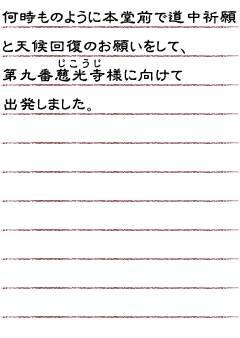 何時ものように本堂前で道中祈願
と天候回復のお願いをして、
じこうじ
第九番慈光寺様に向けて
出発しました。